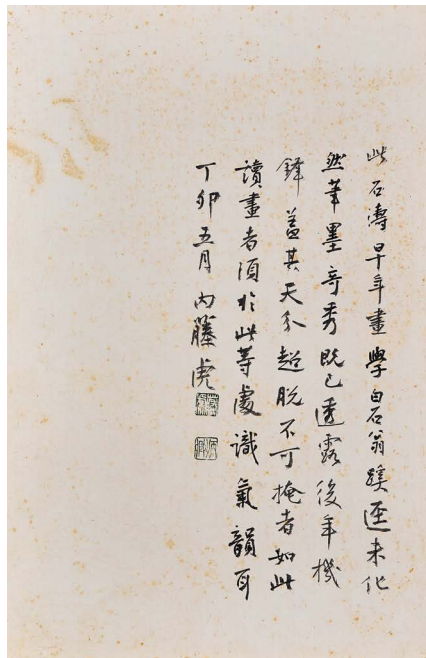 此石濤早年畫學白石翁蹊逕未化
然筆墨奇秀既已透露後年機
鋒蓋其天分超脫不可掩者如此
讀畫者須於此等處識氣韻耳
丁卯五月 內藤虎